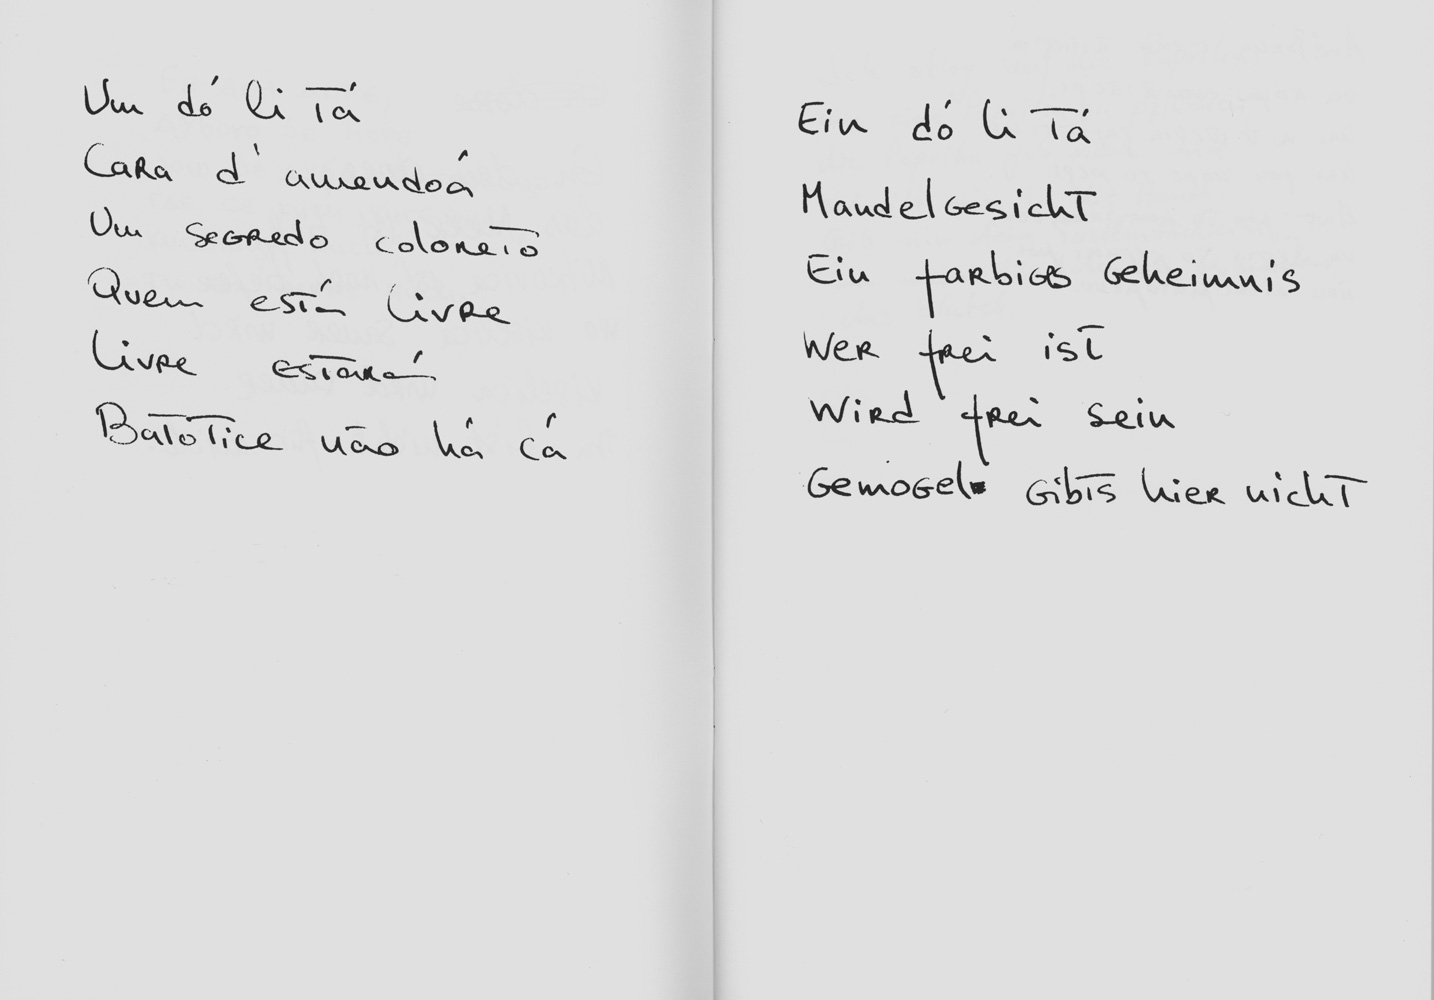 Um dó li tá
Cara d' amendoá
Um segredo coloreto
Quem está livre
Livre estará
Batotice não há cá
Ein dó li tá
Mandelgesicht
Ein farbiges Geheimnis
Wer frei ist
Wird frei sein
Gemogel gibts hier nicht